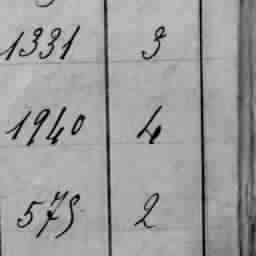 1331 3
1940 4
575 2